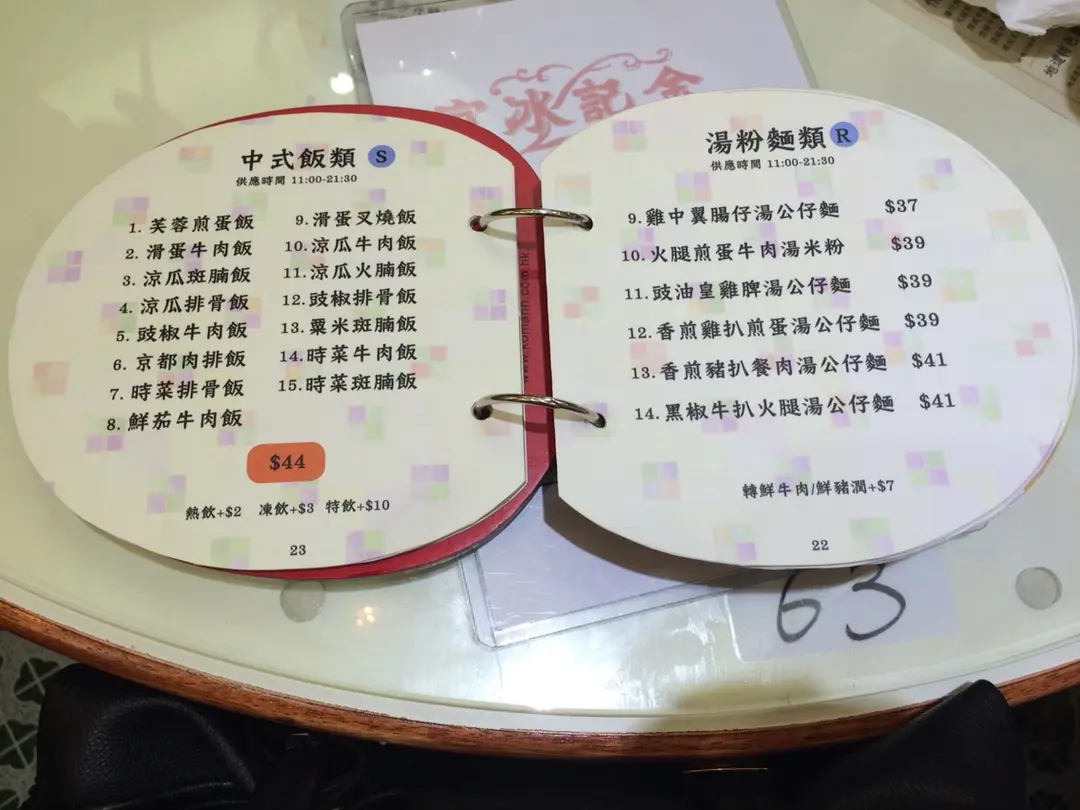 中式飯類 S
供應時間 11:00-21:30
1. 芙蓉煎蛋飯
2. 滑蛋牛肉飯
3. 涼瓜斑腩飯
4. 涼瓜排骨飯
5. 豉椒牛肉飯
6. 京都肉排飯
7. 時菜排骨飯
8. 鮮茄牛肉飯
9. 滑蛋叉燒飯
10. 涼瓜牛肉飯
11. 涼瓜火腩飯
12. 豉椒排骨飯
13. 粟米斑腩飯
14. 時菜牛肉飯
15. 時菜斑腩飯
$44
熱飲+$2 凍飲+$3 特飲+$10
23
湯粉麵類 R
供應時間 11:00-21:30
9. 雞中翼腸仔湯公仔麵 $37
10. 火腿煎蛋牛肉湯米粉 $39
11. 豉油皇雞脾湯公仔麵 $39
12. 香煎雞扒煎蛋湯公仔麵 $39
13. 香煎豬扒餐肉湯公仔麵 $41
14. 黑椒牛扒火腿湯公仔麵 $41
轉鮮牛肉/鮮豬潤+$7
22
冰記金
63